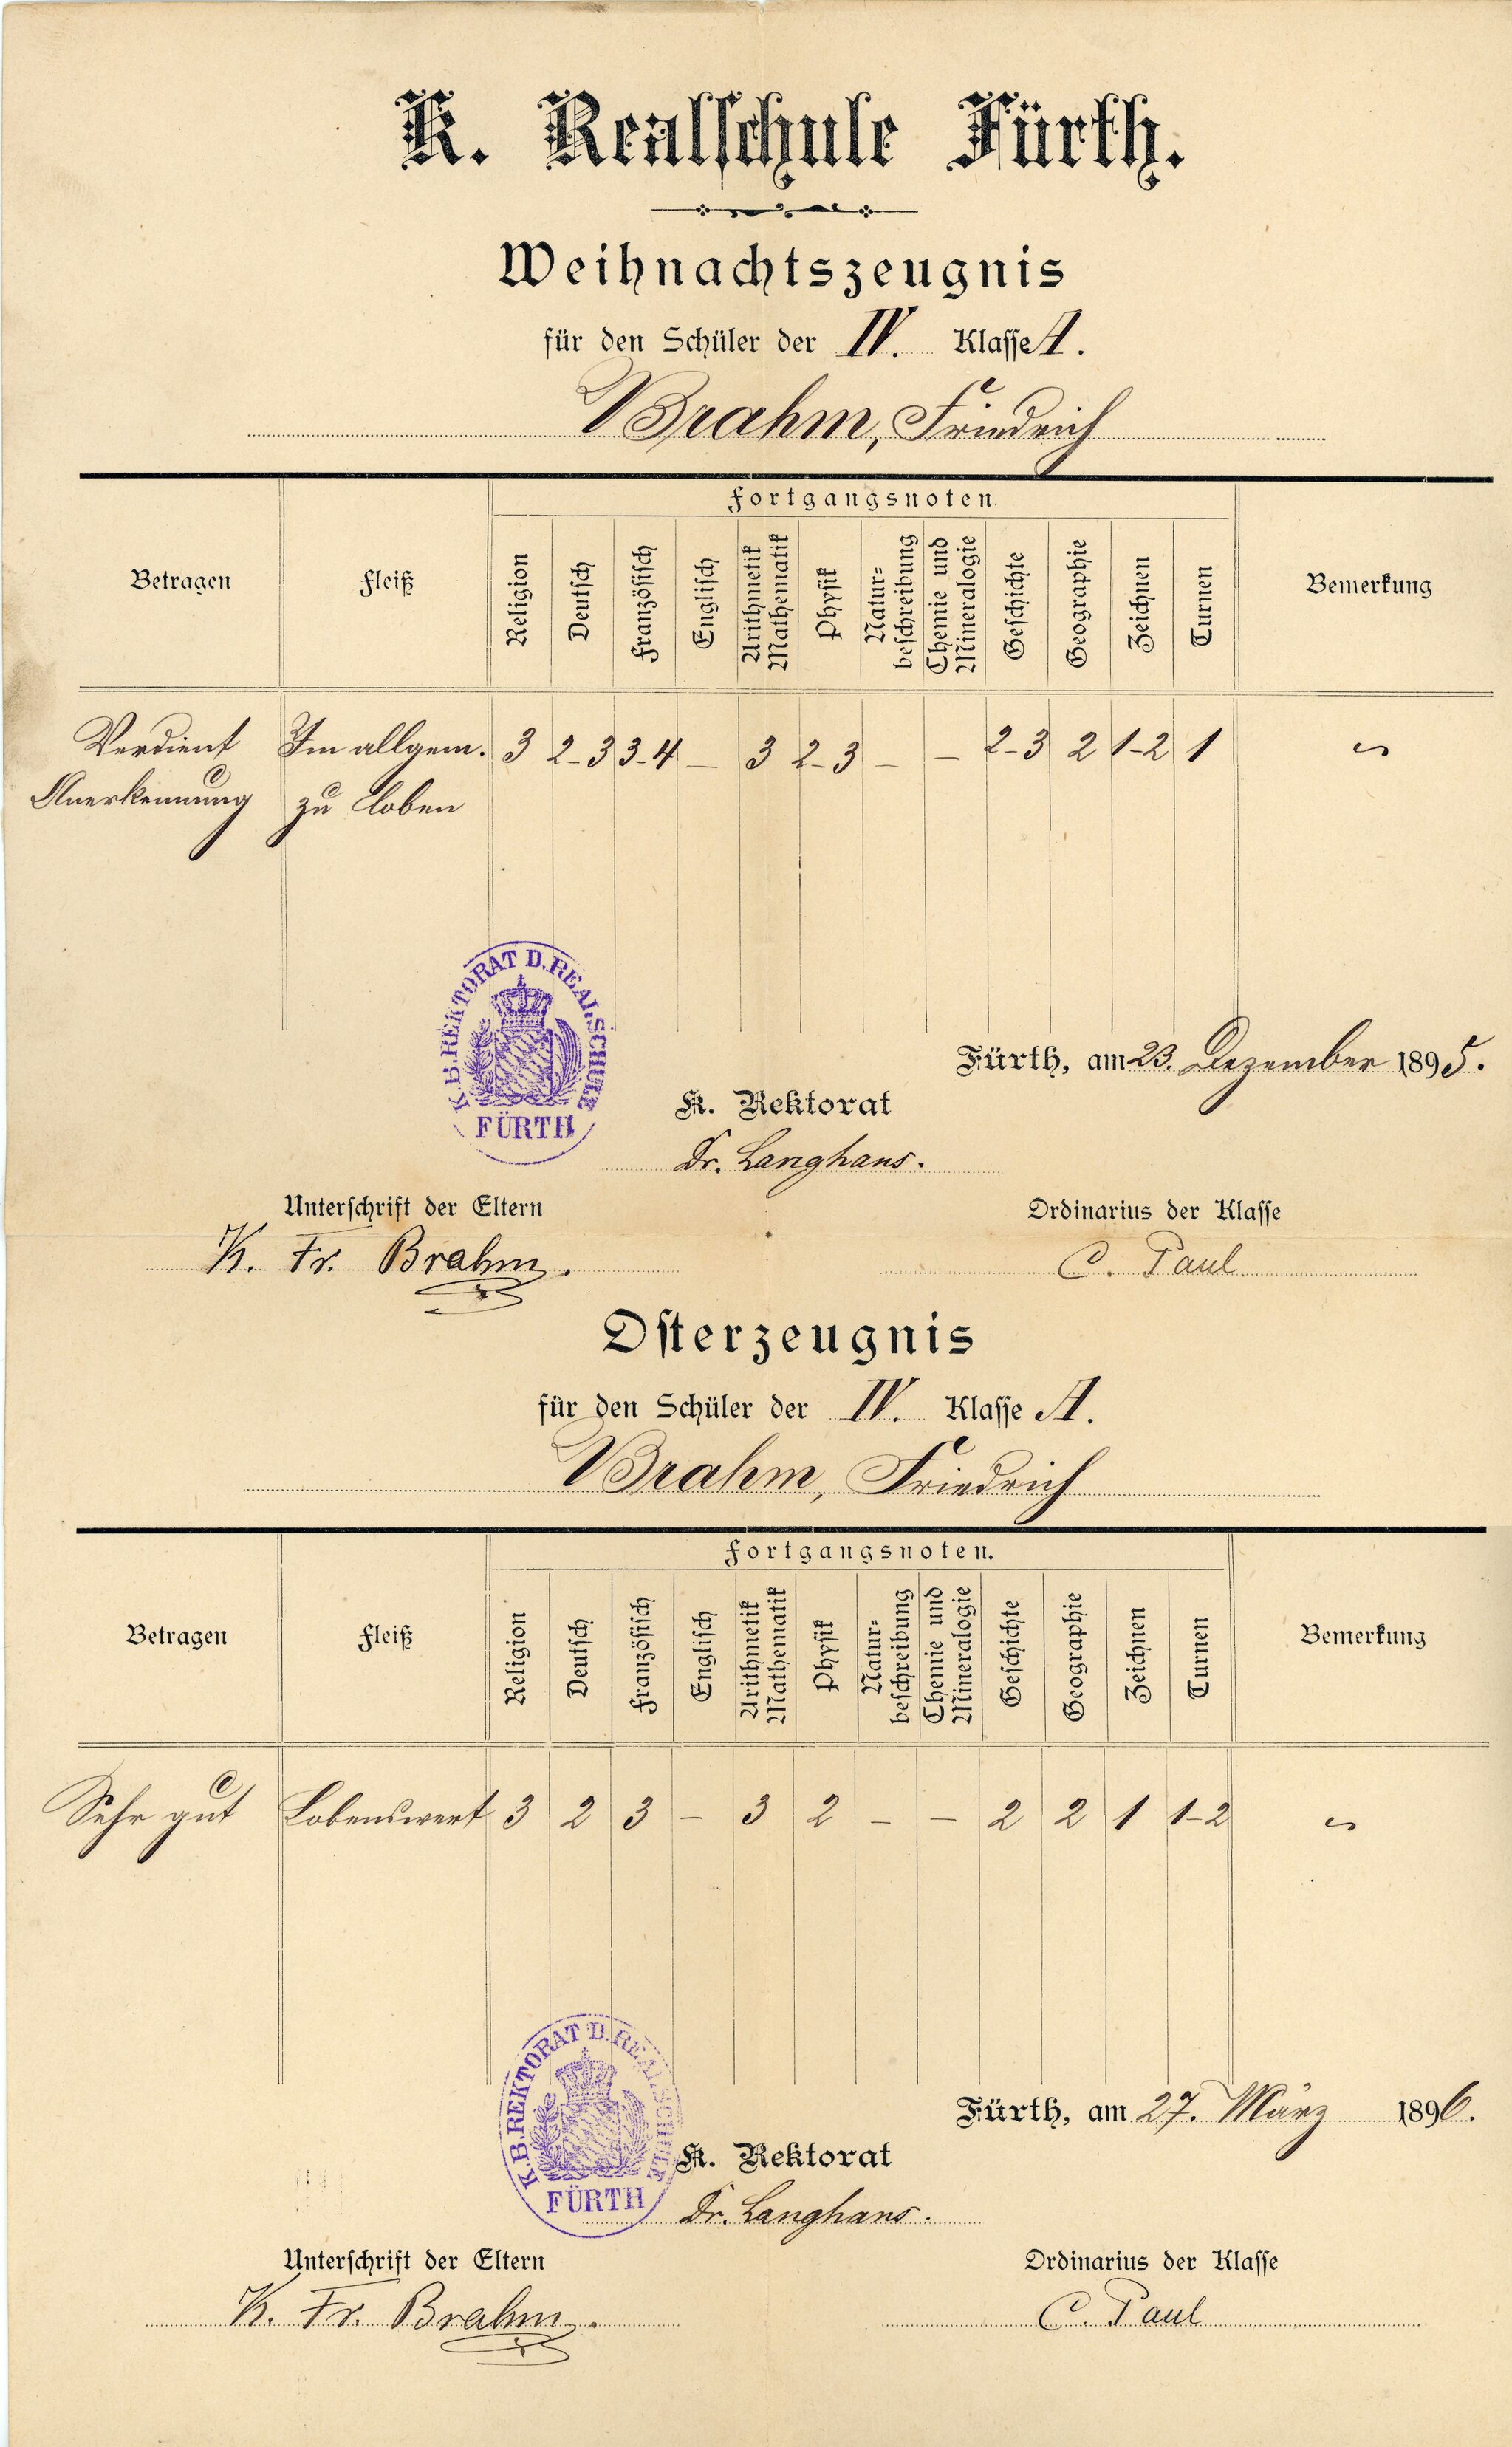 K. Realschule Fürth.
Weihnachtszeugnis
für den Schüler der IV. Klasse A.
Brahm, Friedrich
Fortgangsnoten.
Betragen Fleiß Religion Deutsch Französisch Englisch Arithmetik Mathematik Physik Natur=beschreibung Chemie und Mineralogie Geschichte Geographie Zeichnen Turnen Bemerkung
Verdient Im allgem. 3 2-3 3-4 – 3 2-3 – – 2-3 2 1-2 1
Anerkennung zu loben
K. B. REKTORAT D. REALSCHULE
FÜRTH
Fürth, am 23. Dezember 1895.
K. Rektorat
Dr. Langhans.
Unterschrift der Eltern Ordinarius der Klasse
K. Fr. Brahm. C. Paul
Osterzeugnis
für den Schüler der IV. Klasse A.
Brahm, Friedrich
Fortgangsnoten.
Betragen Fleiß Religion Deutsch Französisch Englisch Arithmetik Mathematik Physik Natur=beschreibung Chemie und Mineralogie Geschichte Geographie Zeichnen Turnen Bemerkung
Sehr gut Lobenswert 3 2 3 – 3 2 – – 2 2 1 1-2
K. B. REKTORAT D. REALSCHULE
FÜRTH
Fürth, am 27. März 1896.
K. Rektorat
Dr. Langhans.
Unterschrift der Eltern Ordinarius der Klasse
K. Fr. Brahm. C. Paul